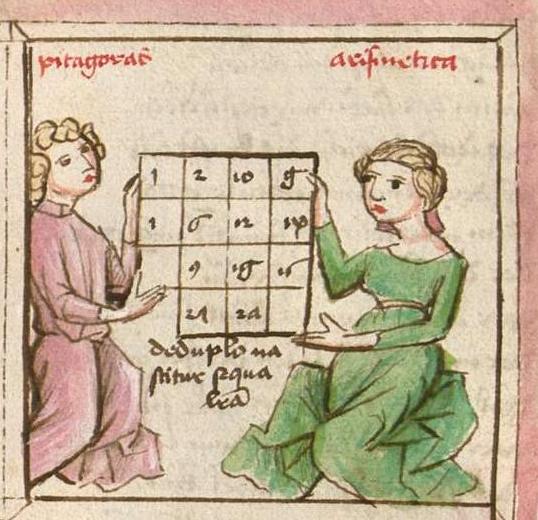 pitagoras
arismetica
1 2 10 8
1 6 12 18
9 18
24 24
de duplo na
scitur sequa